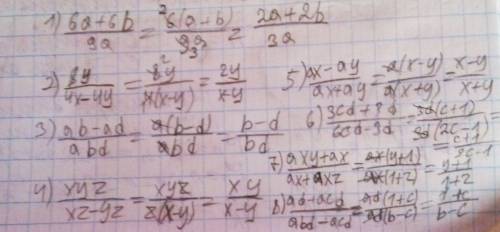 1) (6a+6b)/9a = 6(a+b)/9a = (2a+2b)/3a
2) 8y/(4x-4y) = 8y/4(x-y) = 2y/(x-y)
3) (ab-ad)/abd = a(b-d)/abd = (b-d)/bd
4) xyz/(xz-yz) = xyz/z(x-y) = xy/(x-y)
5) (ax-ay)/(ax+ay) = a(x-y)/a(x+y) = (x-y)/(x+y)
6) (3cd+3d)/(6cd-3d) = 3d(c+1)/3d(2c-1) =
= (c+1)/(2c-1)
7) (axy+ax)/(ax+axz) = ax(y+1)/ax(1+z) = (y+1)/(1+z)
8) (ad+acd)/(abd-acd) = ad(1+c)/ad(b-c) = (1+c)/(b-c)